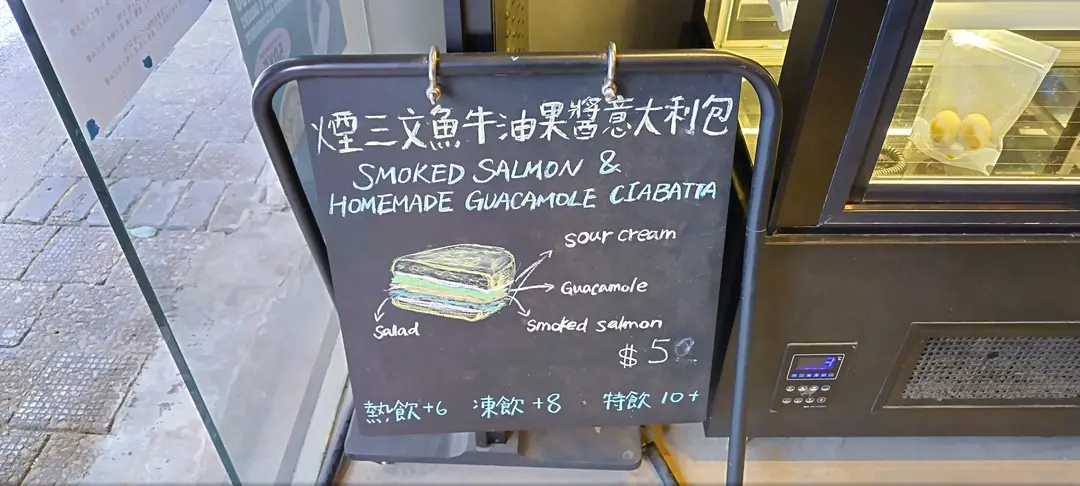 煙三文魚牛油果醬意大利包
SMOKED SALMON &
HOMEMADE GUACAMOLE CIABATTA
sour cream
Guacamole
Salad
smoked salmon
$5
熱飲+6 凍飲+8 特飲 10+
3